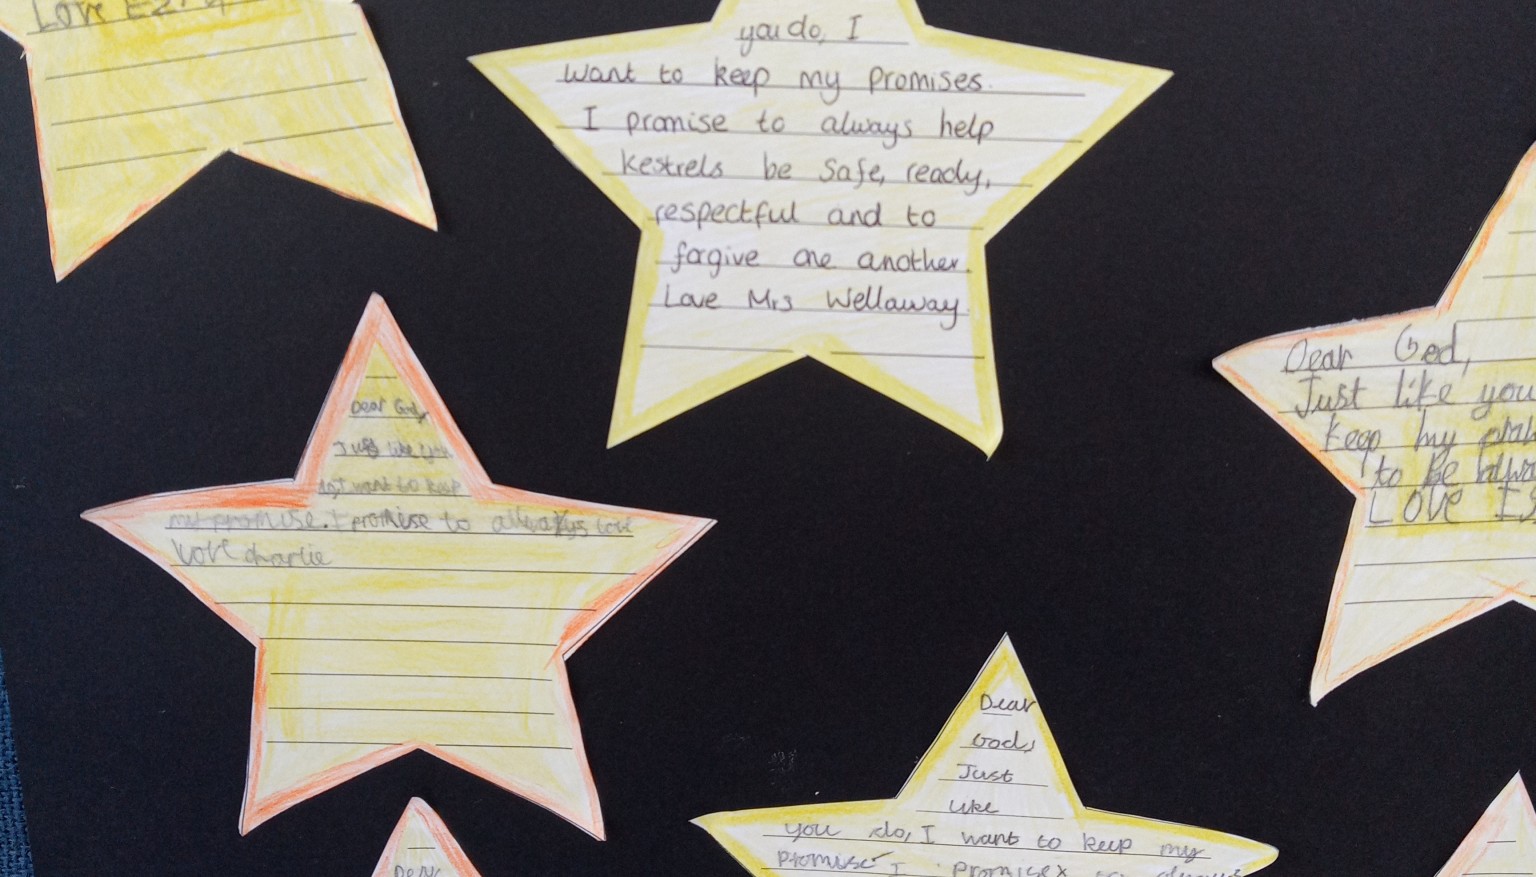 Love
you do, I
want to keep my promises.
I promise to always help
Kestrels be safe, ready,
respectful and to
forgive one another.
Love Mrs Wellaway.
Dear God,
Just like
want to keep
my promise. I promise to always
love charlie
Dear God,
Just like you
keep my
to be
Love
Dear
God,
Just
like
you do, I want to keep my
promise I promise
Dear